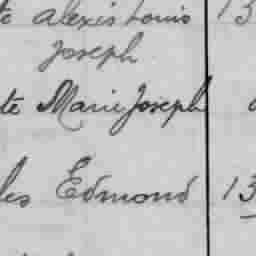 te Alexis Louis 13
Joseph
te Marie Joseph
les Edmond 13